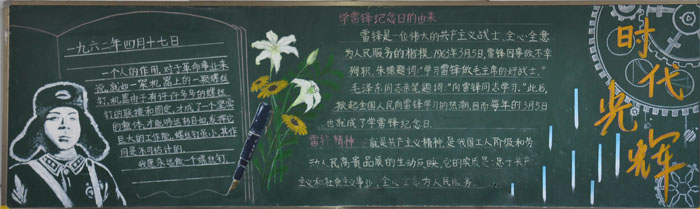 一九六二年四月十七日
一个人的作用,对于革命事业来
说,就如一架机器上的一颗螺丝
钉。机器由于有许许多多的螺丝
钉的联接和固定,才成了一个坚实
的整体,才能运转自如,发挥它
巨大的工作能。螺丝钉虽小,其作
用是不可估计的。
我愿永远做一个螺丝钉。
学雷锋纪念日的由来
雷锋是一位伟大的共产主义战士,全心全意
为人民服务的楷模。1963年3月5日,雷锋因事故不幸
殉职,朱德题词:“学习雷锋做毛主席的好战士。”
毛泽东同志亲笔题词:“向雷锋同志学习。”此后,
掀起全国人民向雷锋学习的热潮,因而每年的3月5日
也就成了学雷锋纪念日。
雷锋精神:就是共产主义精神,是我国工人阶级和劳
动人民高贵品质的生动反映,它的实质是:忠于共产
主义和社会主义事业,全心全意为人民服务……
时代光辉